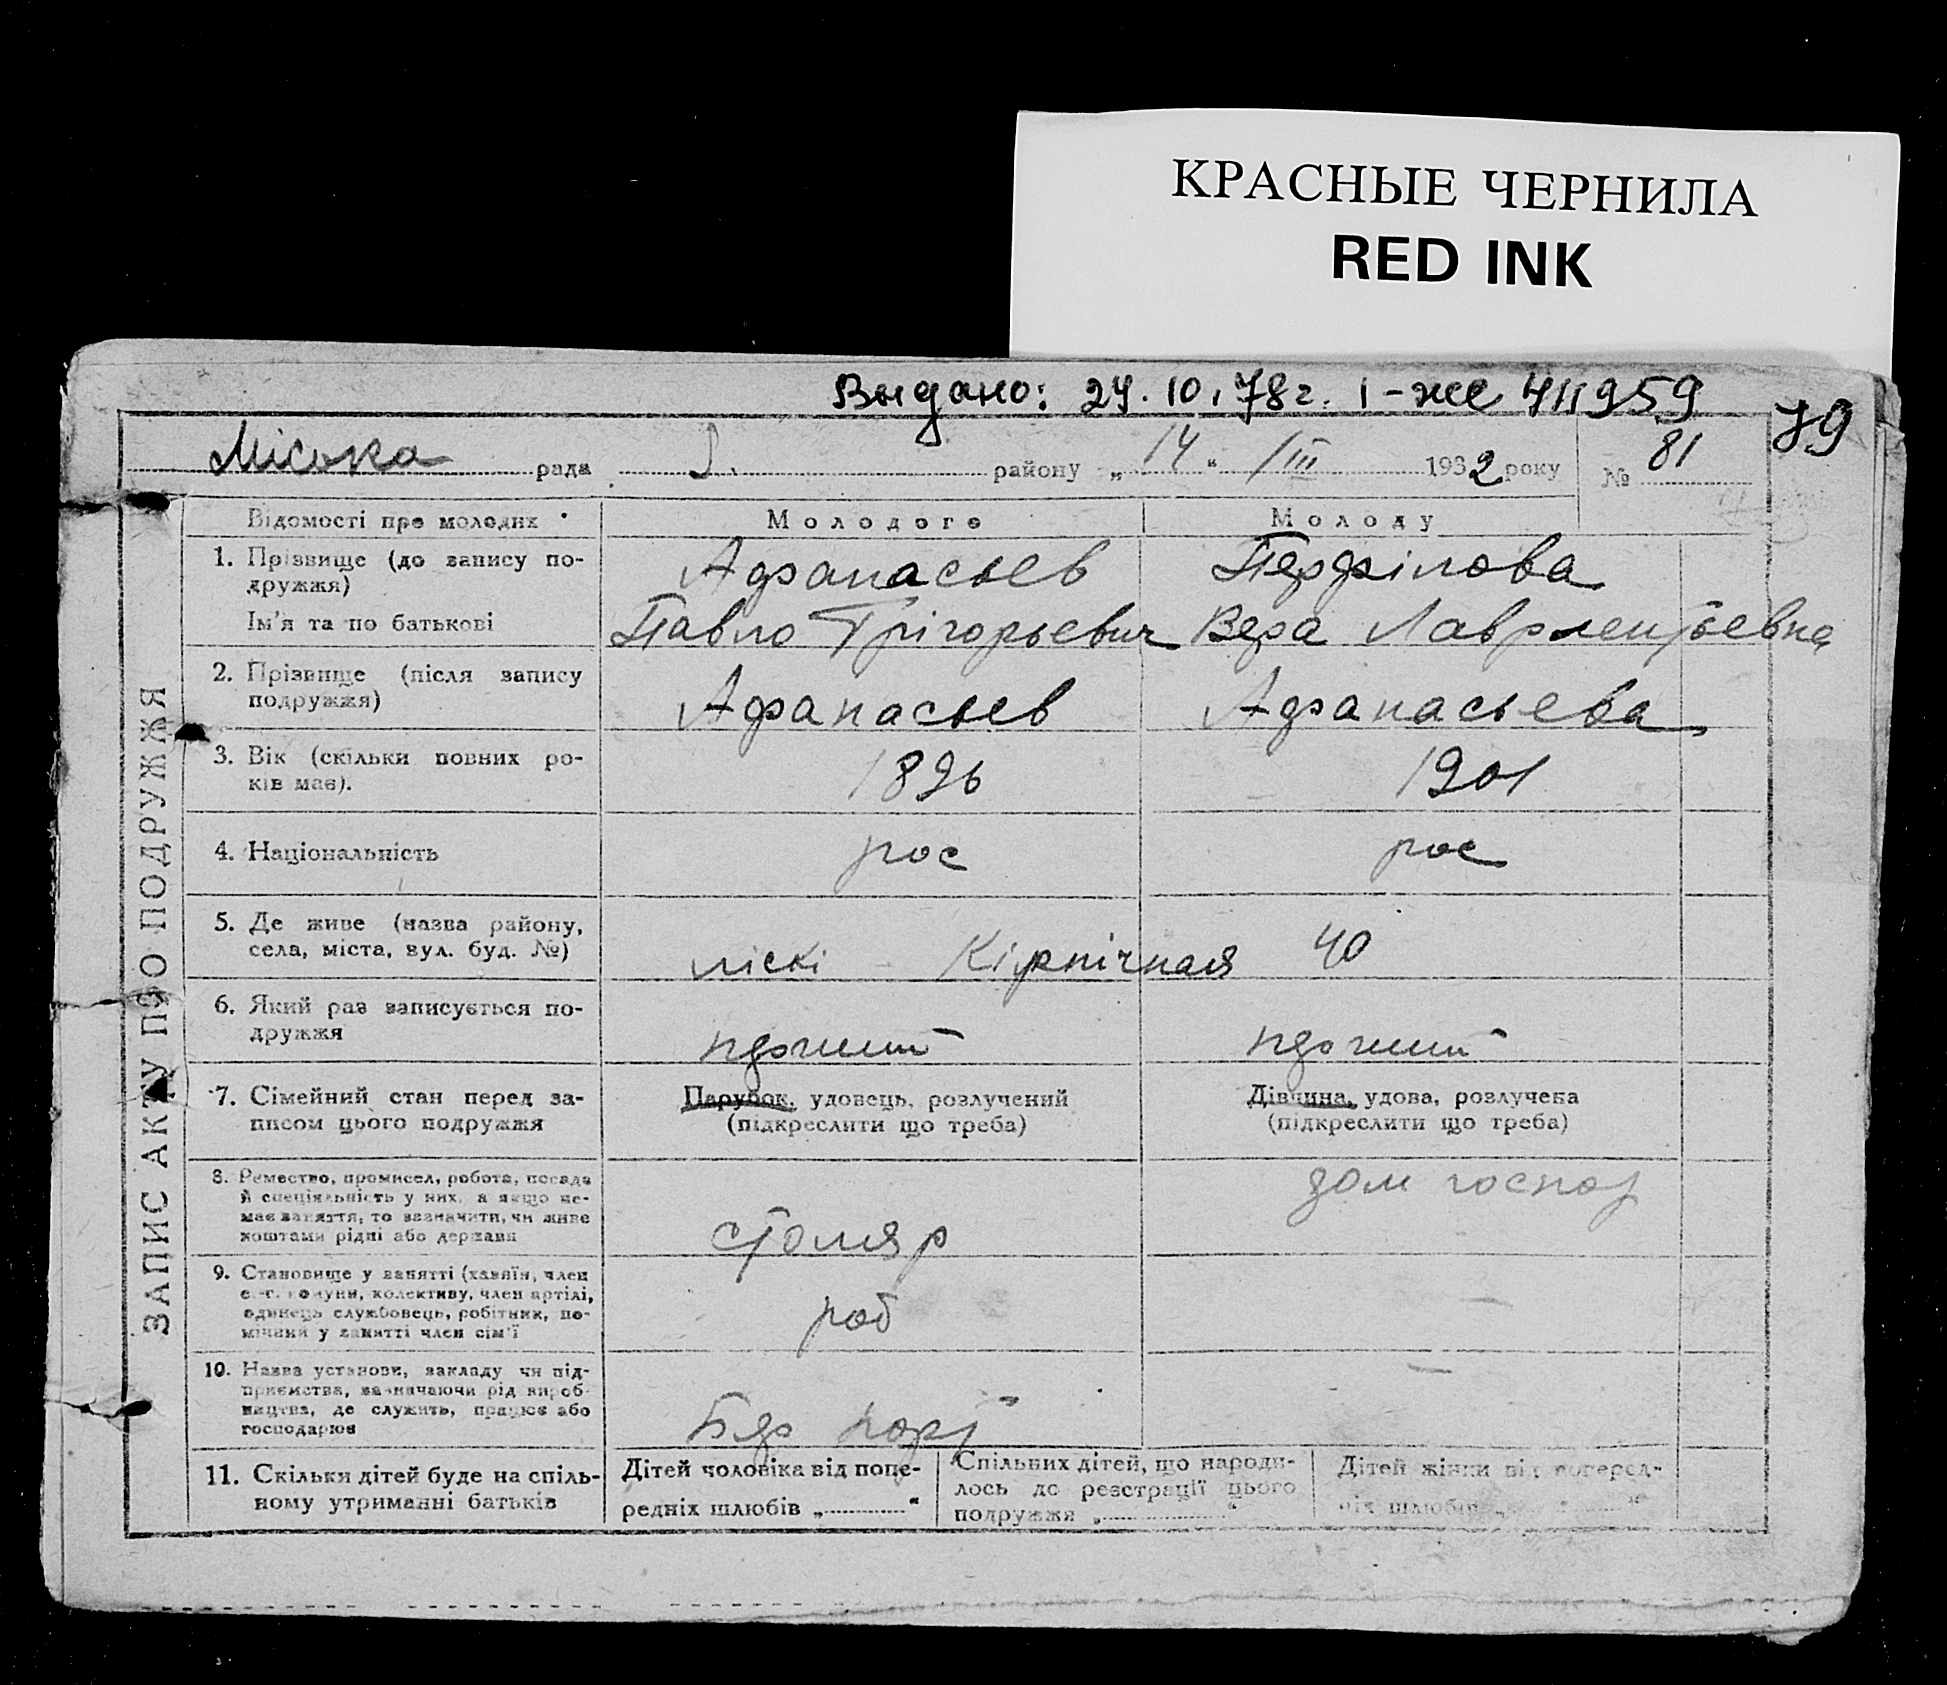 КРАСНЫЕ ЧЕРНИЛА
RED INK
Выдано: 24.10.78г. I-же 411959
79
Міська рада району „ 14 “ /III 1932 року № 81
ЗАПИС АКТУ ПРО ПОДРУЖЖЯ
Відомості про молодих Молодого Молоду
1. Прізвище (до запису по-
дружжя)
Афанасьев Перфілова
Ім'я та по батькові Павло Грігорьевич Вера Лаврлентьевна
2. Прізвище (після запису
подружжя)
Афанасьев Афанасьева
3. Вік (скільки повних ро-
ків має).
1896 1901
4. Національність рос рос
5. Де живе (назва району,
села, міста, вул. буд. №)
ліскі Кірпічная 40
6. Який раз записується по-
дружжя
7. Сімейний стан перед за-
писом цього подружжя
Парубок, удовець, розлучений
(підкреслити що треба)
Дівчина, удова, розлучена
(підкреслити що треба)
8. Ремество, промисел, робота, посада
й спеціяльність у них, а якщо не-
має заняття, то зазначити, чи живе
коштами рідні або держави
столяр дом господ
9. Становище у занятті (хазяїн, член
комуни, колективу, член артілі,
одинець службовець, робітник, по-
мічний у занятті член сім'ї
роб —
10. Назва установи, закладу чи під-
приємства, зазначаючи рід вироб-
ництва, де служить, працює або
господарює
порт —
11. Скільки дітей буде на спіль-
ному утриманні батьків
Дітей чоловіка від попе-
редніх шлюбів „ “
Спільних дітей, що народи-
лось до реєстрації цього
подружжя „ “
Дітей жінки від поперед-
ніх шлюбів „ “